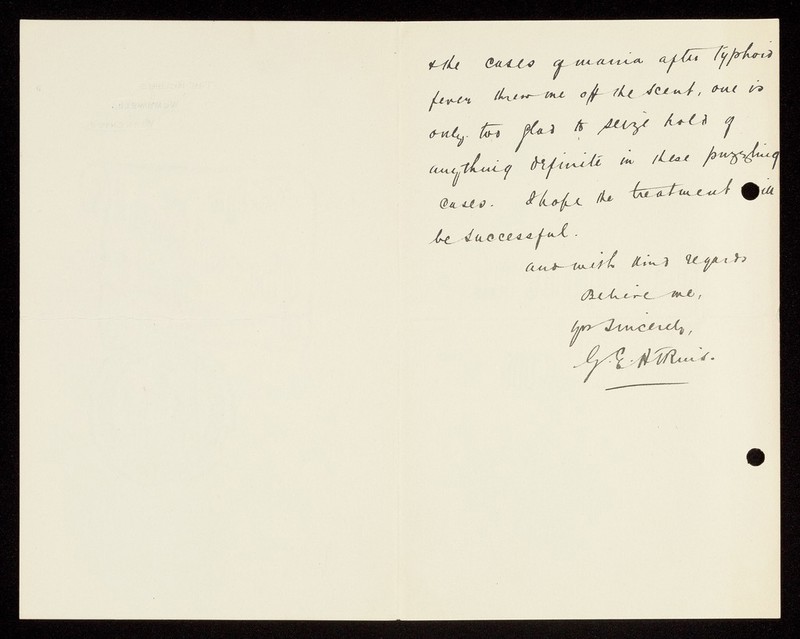 & the cases of mania after typhoid
fever threw me off the scent, one is
only too glad to seize hold of
anything definite in these puzzling
cases. I hope the treatment will
be successful.
And with kind regards
Believe me,
yrs sincerely,
G. E. Atkins.